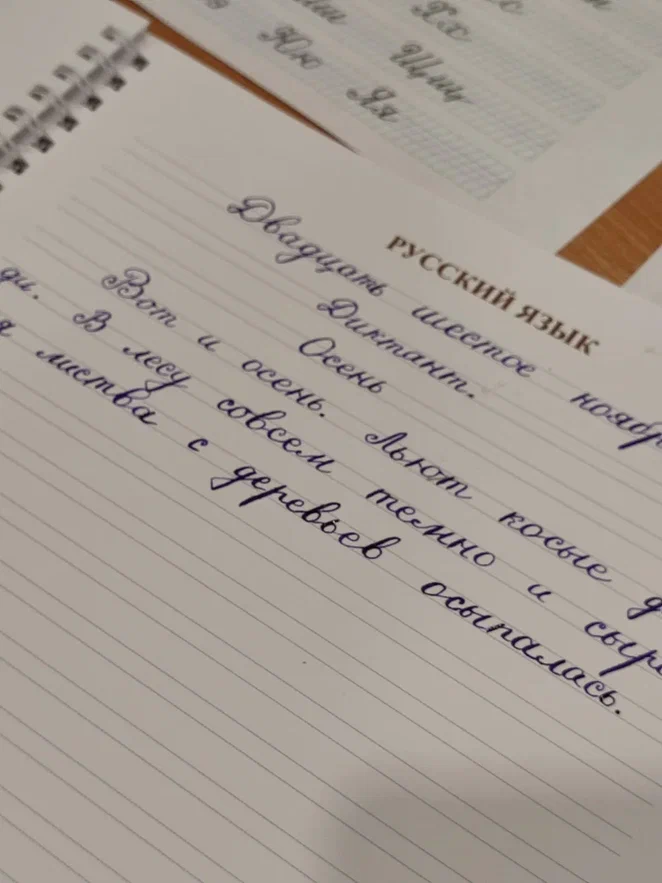 Хх
Щщ
Юю
Яя
РУССКИЙ ЯЗЫК
Двадцать шестое
Диктант.
Осень
Вот и осень. Льют косые
В лесу совсем темно и
листва с деревьев осыпалась.